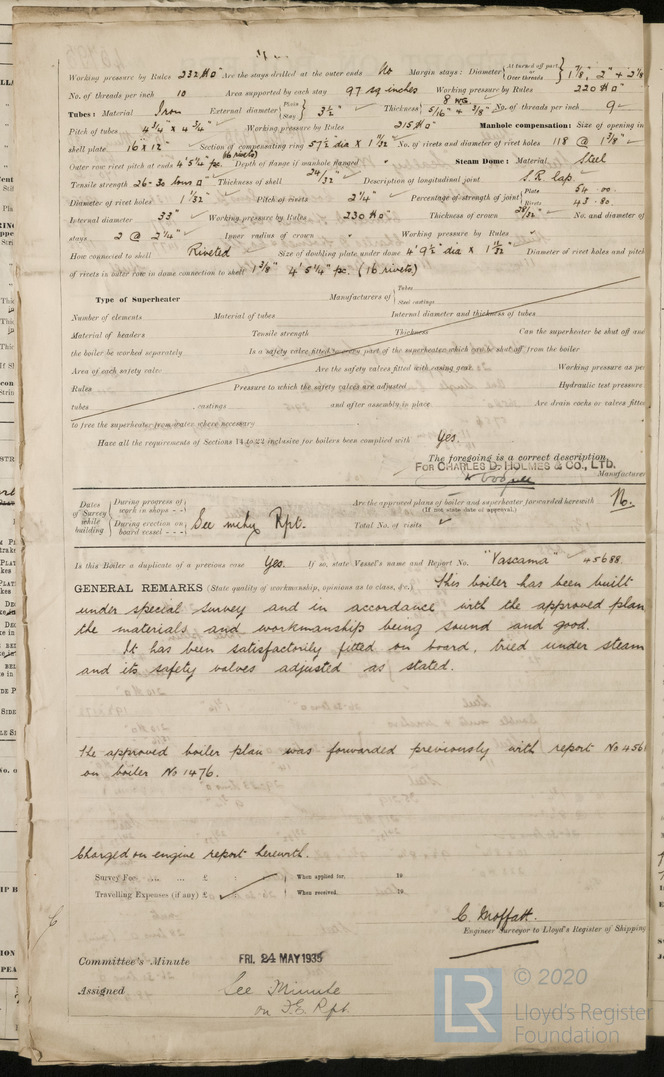 Working pressure by Rules 232 lbs □" Are the stays drilled at the outer ends No Margin stays: Diameter { At turned off part, or Over threads } 1 7/8", 2" + 2 1/8
No. of threads per inch 10 Area supported by each stay 97 sq inches Working pressure by Rules 220 lbs □"
Tubes: Material Iron External diameter { Plain Stay } 3 1/2" Thickness { 8 WG 5/16" + 3/8" No. of threads per inch 9
Pitch of tubes 4 3/4" x 4 3/4" Working pressure by Rules 215 lbs □" Manhole compensation: Size of opening in
shell plate 16 x 12" Section of compensating ring 57 1/2 dia x 1 11/32" No. of rivets and diameter of rivet holes 118 @ 1 3/8"
Outer row rivet pitch at ends 4' 5 1/4" pc. (16 rivets) Depth of flange if manhole flanged " Steam Dome: Material Steel
Tensile strength 26-30 tons □" Thickness of shell 24/32" Description of longitudinal joint S.R. lap.
Diameter of rivet holes 1 1/32" Pitch of rivets 2 1/4" Percentage of strength of joint { Plate 54.00. Rivets 43.80
Internal diameter 33" Working pressure by Rules 230 lbs □" Thickness of crown /32" No. and diameter of
stays 2 @ 2 1/4" Inner radius of crown " Working pressure by Rules "
How connected to shell Riveted Size of doubling plate under dome 4' 9 1/2" dia x 1 11/32" Diameter of rivet holes and pitch
of rivets in outer row in dome connection to shell 1 3/8" 4' 5 1/4" pc. (16 rivets)
Type of Superheater Manufacturers of { Tubes Steel castings
Number of elements Material of tubes Internal diameter and thickness of tubes
Material of headers Tensile strength Thickness Can the superheater be shut off and
the boiler be worked separately Is a safety valve fitted to every part of the superheater which can be shut off from the boiler
Area of each safety valve Are the safety valves fitted with easing gear Working pressure as per
Rules Pressure to which the safety valves are adjusted Hydraulic test pressure
tubes , castings and after assembly in place Are drain cocks or valves fitted
to free the superheater from water where necessary
Have all the requirements of Sections VI to 22 inclusive for boilers been complied with Yes.
The foregoing is a correct description,
FOR CHARLES D. HOLMES & CO., LTD.
Manufacturer
Dates of Survey while building { During progress of work in shops - - } { During erection on board vessel - - - } See mchy Rpt.
Are the approved plans of boiler and superheater forwarded herewith No.
(If not state date of approval.)
Total No. of visits
Is this Boiler a duplicate of a previous case Yes. If so, state Vessel's name and Report No. "Vascama" 45688.
GENERAL REMARKS (State quality of workmanship, opinions as to class, &c.) This boiler has been built
under special survey and in accordance with the approved plan
the materials and workmanship being sound and good.
It has been satisfactorily fitted on board, tried under steam
and its safety valves adjusted as stated.
The approved boiler plan was forwarded previously with report No 456
on boiler No 1476.
Charged on engine report herewith.
Survey Fee ... ... £ : : } When applied for, 19
Travelling Expenses (if any) £ : : } When received, 19
C. Moffatt.
Engineer Surveyor to Lloyd's Register of Shipping
Committee's Minute FRI. 24 MAY 1935
Assigned See Minute
on F.E. Rpt.
LR © 2020
Lloyd's Register
Foundation